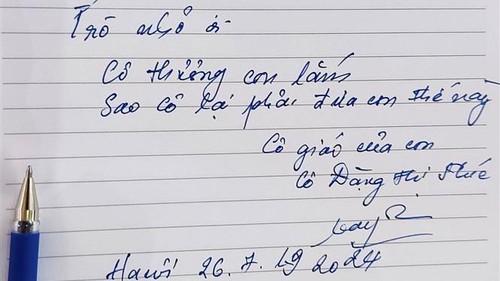 Trò nhỏ ơi
Cô thương con lắm
Sao cô lại phải đưa con thế này
Cô giáo của con
Cô Đặng thị Phúc
26.7.
2024